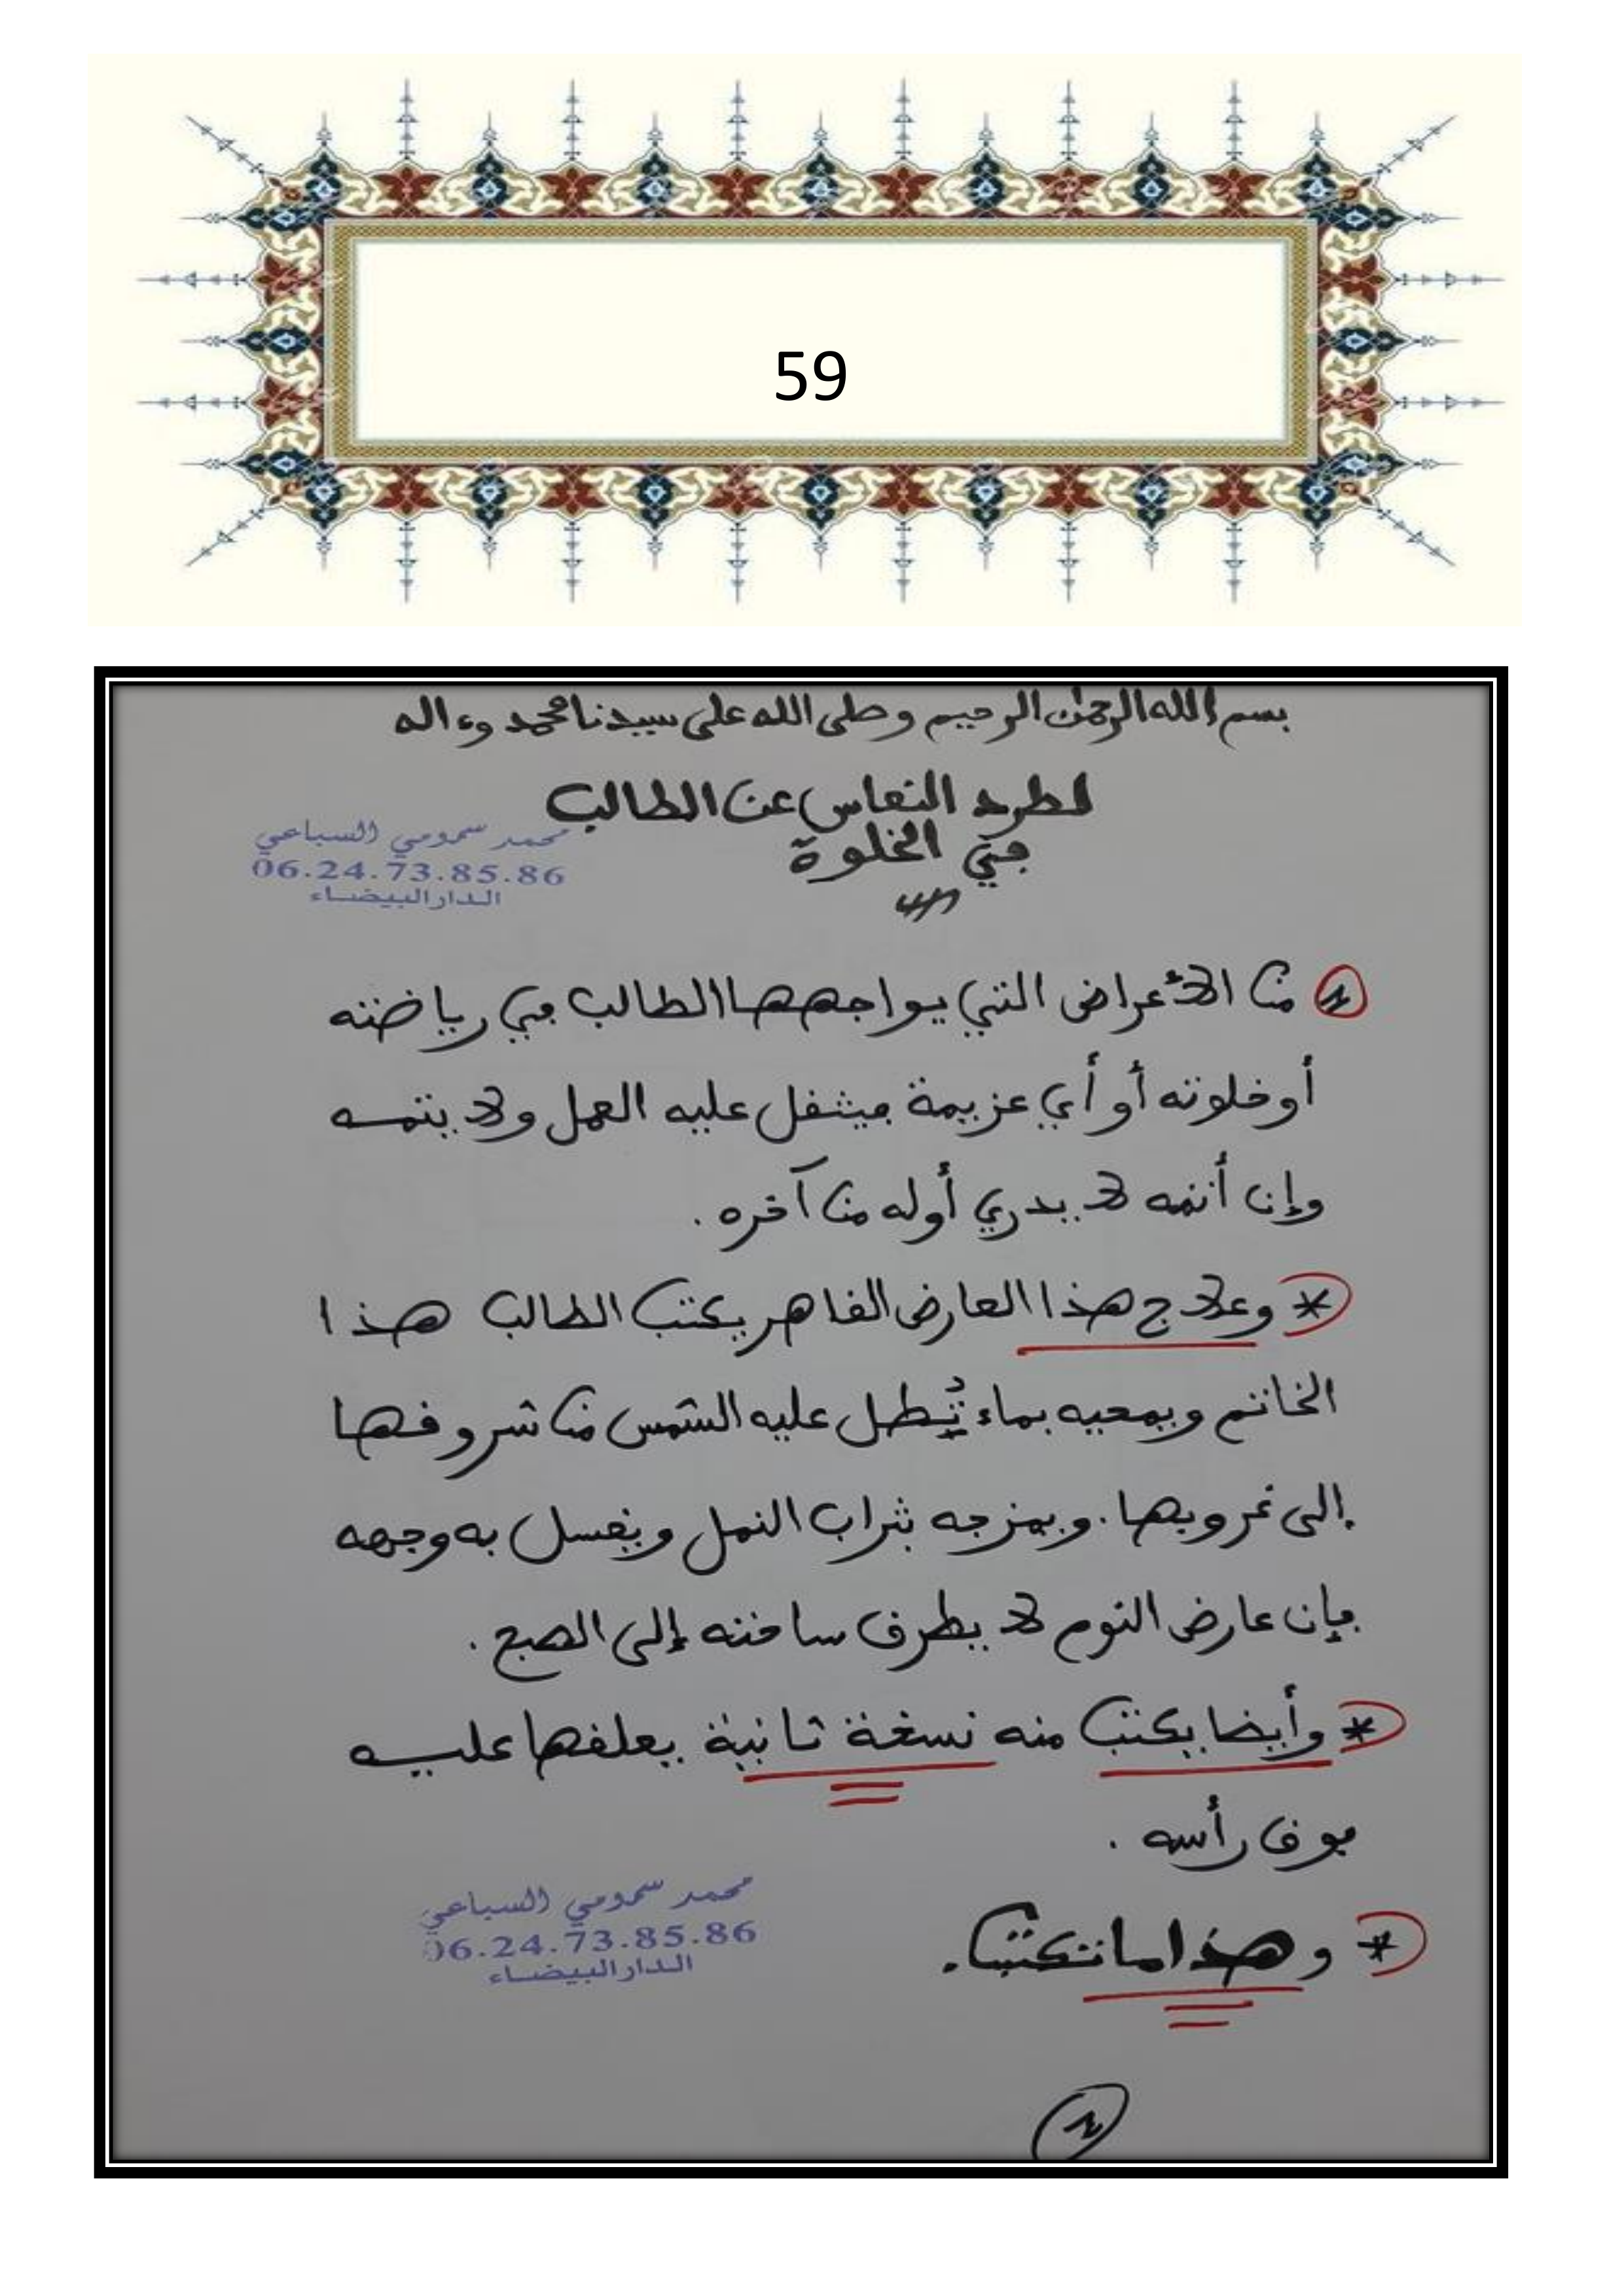 59
بسم الله الرحمن الرحيم وصلى الله على سيدنا محمد وءاله
لطرد النعاس عن الطالب
في الخلوة
محمد سمومي السباعي
06.24.73.85.86
الدار البيضاء
من الأعراض التي يواجهها الطالب في رياضته
أو خلوته أو أي عزيمة فيثقل عليه العمل ولا يتمه
وإن أتمه لا يدري أوله من آخره.
* وعلاج هذا العارض القاهر يكتب الطالب هذا
الخاتم ويمحيه بماء تُطل عليه الشمس من شروقها
إلى غروبها. ويمزجه بتراب النمل ويغسل به وجهه
فإن عارض النوم لا يطرق ساحته إلى الصبح.
* وأيضا يكتب منه نسخة ثانية يعلقها عليه
فوق رأسه.
محمد سمومي السباعي
06.24.73.85.86
الدار البيضاء
* وهذا ما تكتب.